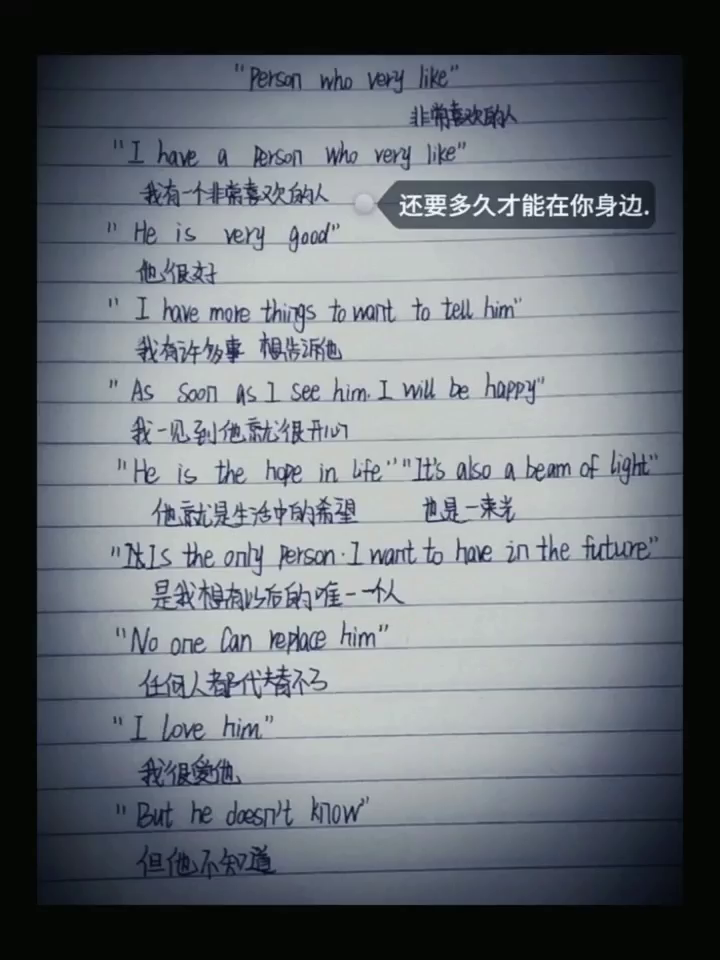 "Person who very like"
非常喜欢的人
"I have a person who very like"
我有一个非常喜欢的人
还要多久才能在你身边.
"He is very good"
他很好
"I have more things to want to tell him"
我有许多事 想告诉他
"As soon as I see him. I will be happy"
我一见到他就很开心
"He is the hope in life" "It's also a beam of light"
他就是生活中的希望 也是一束光
"It Is the only person. I want to have in the future"
是我想有以后的唯一一个人
"No one can replace him"
任何人都代替不了
"I love him"
我很爱他
"But he doesn't know"
但他不知道